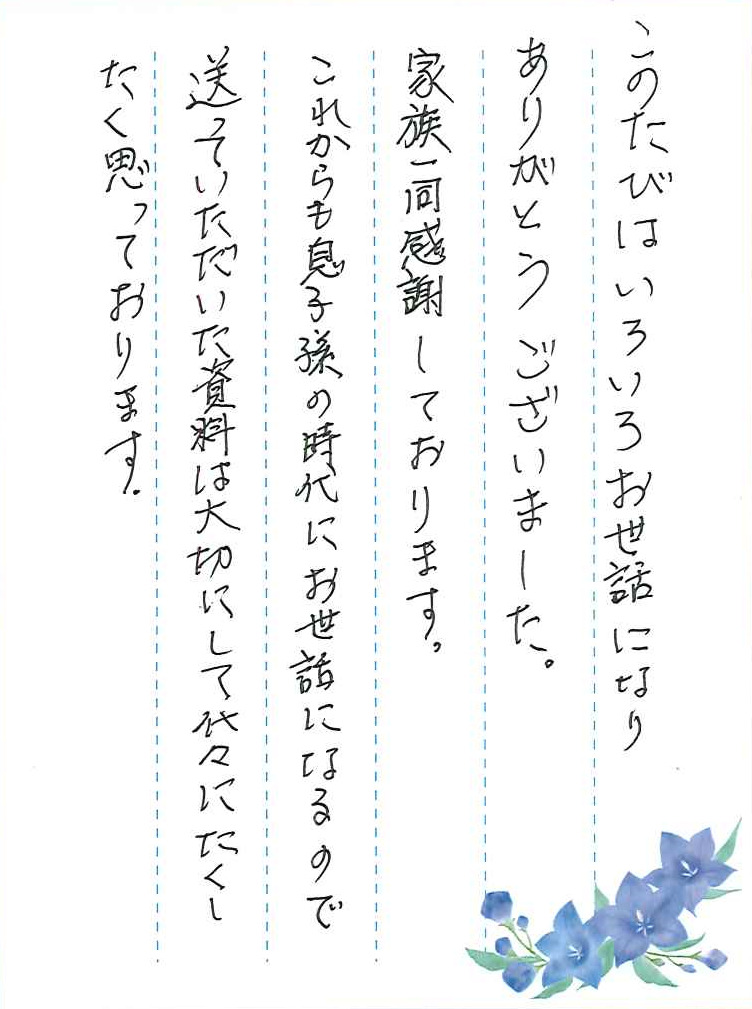 このたびはいろいろお世話になり
ありがとうございました。
家族一同感謝しております。
これからも息子孫の時代にお世話になるので
送っていただいた資料は大切にして代々にたくし
たく思っております。